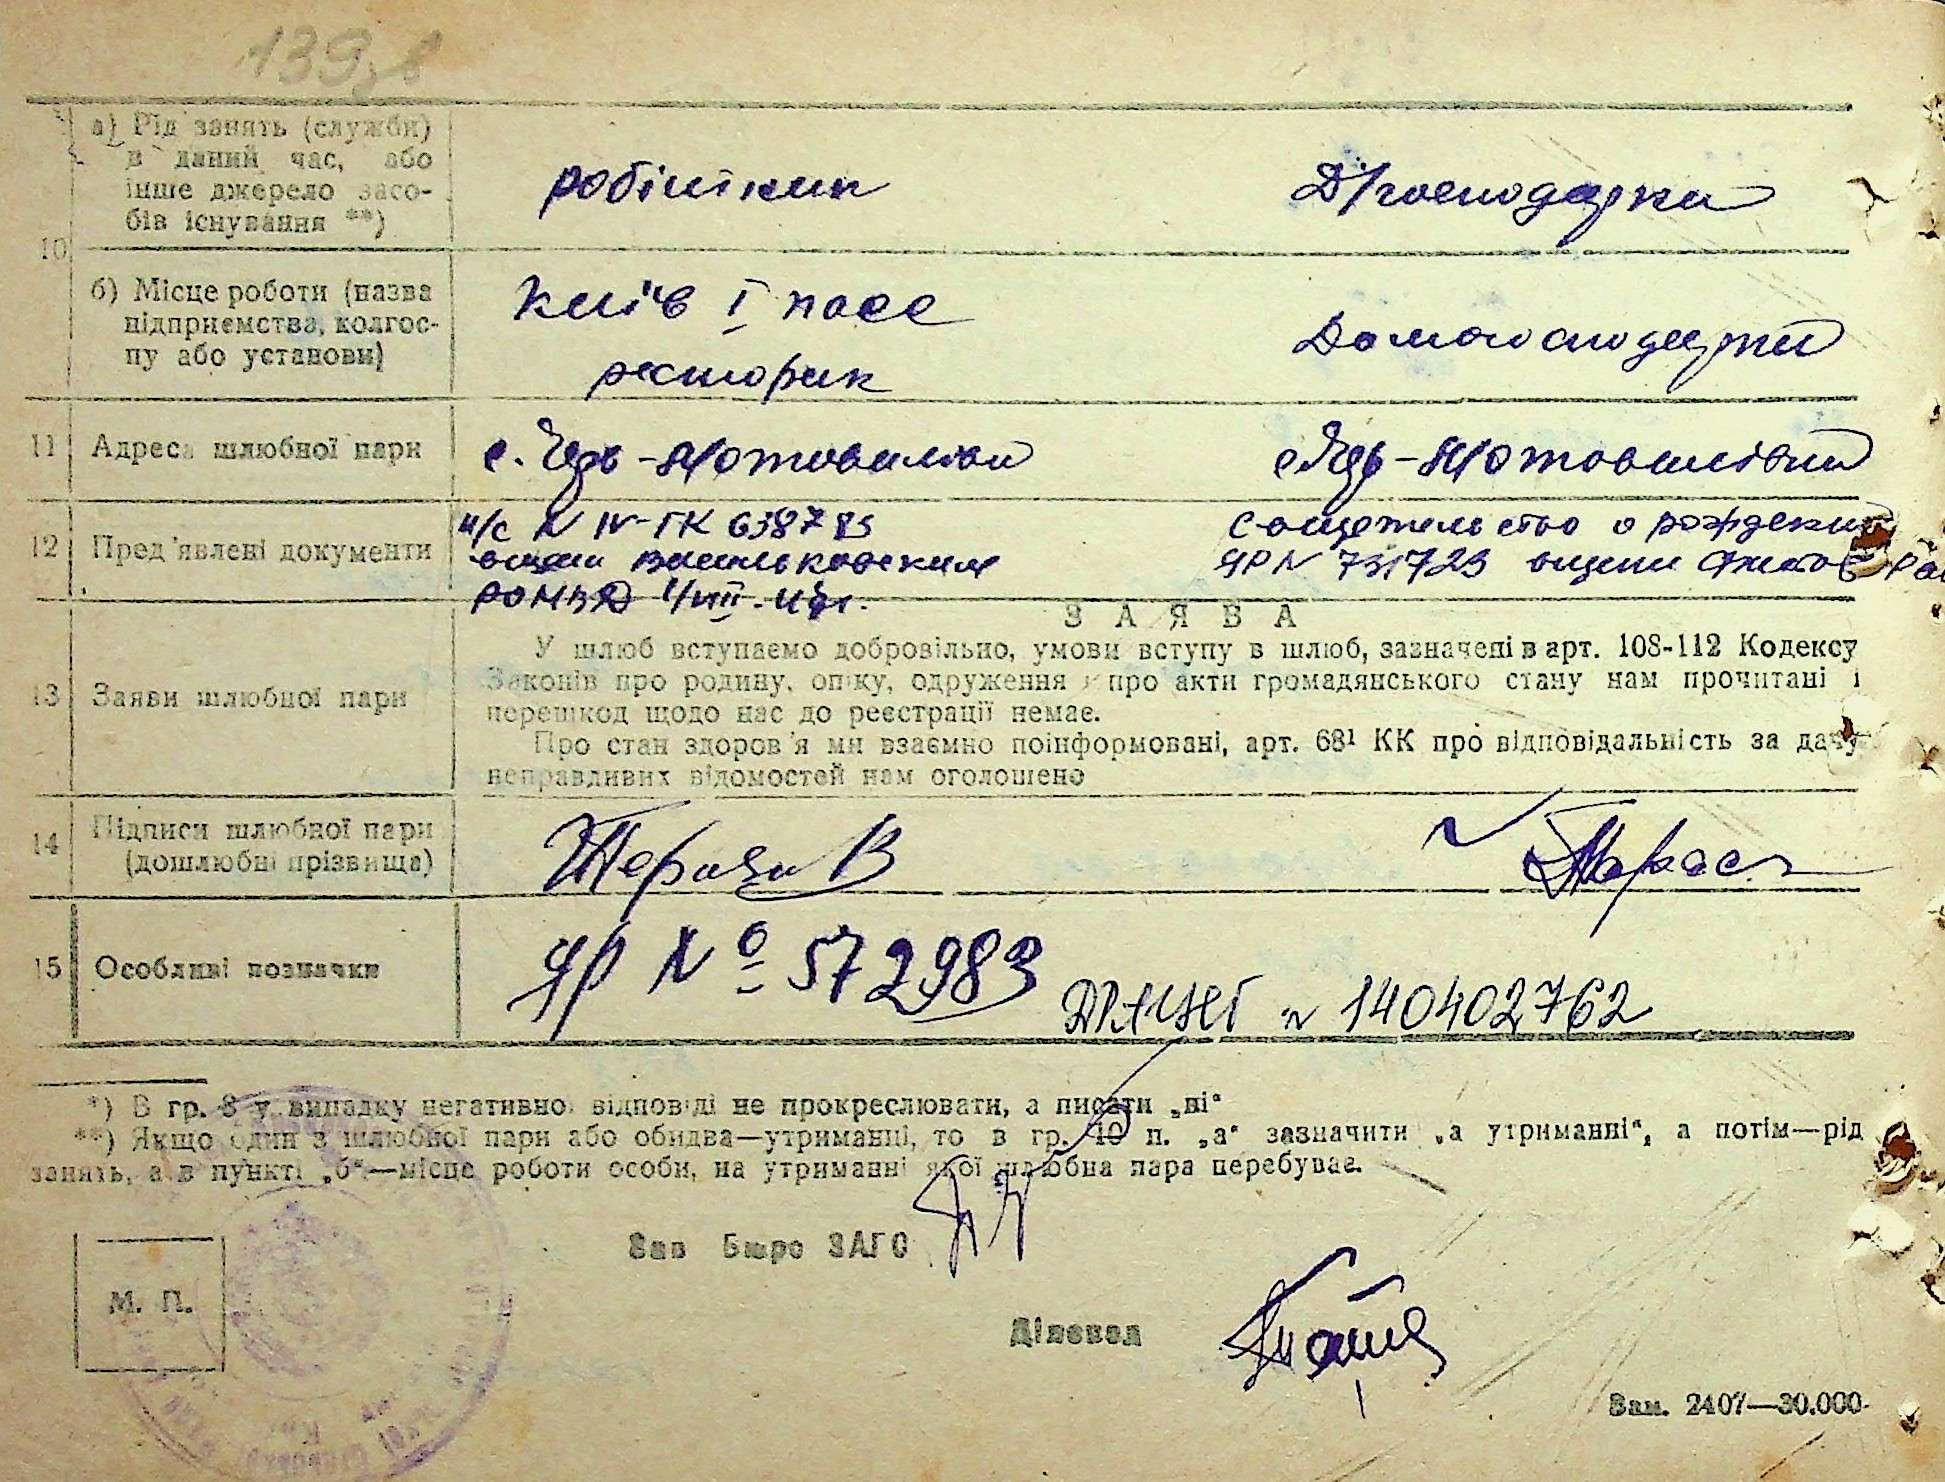 139
10
а) Рід занять (служби)
в даний час, або
інше джерело засо-
бів існування **)
робітник
Д/господарка
б) Місце роботи (назва
підприємства, колгос-
пу або установи)
Київ І пасс
Домогосподарка
11 Адреса шлюбної пари
с.
Мотовилівка
Мотовилівка
12 Пред'явлені документи
п/с N IV-ГК 638783
видан Васильковским
РОМВД
свидетельство о рождении
ЯР N 731723 видано
13 Заяви шлюбної пари
ЗАЯВА
У шлюб вступаємо добровільно, умови вступу в шлюб, зазначені в арт. 108-112 Кодексу
Законів про родину, опіку, одруження і про акти громадянського стану нам прочитані і
перешкод щодо нас до реєстрації немає.
Про стан здоров'я ми взаємно поінформовані, арт. 68¹ КК про відповідальність за дачу
неправдивих відомостей нам оголошено
14 Підписи шлюбної пари
(дошлюбні прізвища)
15 Особливі позначки
ЯР № 572983
ДРАЦСГ N 140402762
*) В гр. 8 у випадку негативної відповіді не прокреслювати, а писати „ні“
**) Якщо один з шлюбної пари або обидва—утриманці, то в гр. 10 п. „а“ зазначити „а утриманні“, а потім—рід
занять, а в пункті „б“—місце роботи особи, на утриманні якої шлюбна пара перебуває.
Зав Бюро ЗАГС
М. П.
Діловод
Зам. 2407—30.000